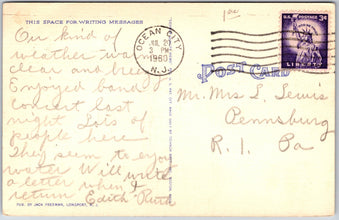 1 00
THIS SPACE FOR WRITING MESSAGES
Our kind of
weather warm
clear and breezy
Enjoyed band
concert last
night Lots of
people here
They seem to enjoy
water Will write
a letter when I
return Edith Ruth
PUB. BY JACK FREEMAN, LONGPORT, N. J.
OCEAN CITY
JUL 20
3 PM
1960
N.J.
U.S. POSTAGE 3¢
LIBERTY
POST CARD
Mr. Mrs L. Lewis
Pennsburg
R. 1. Pa